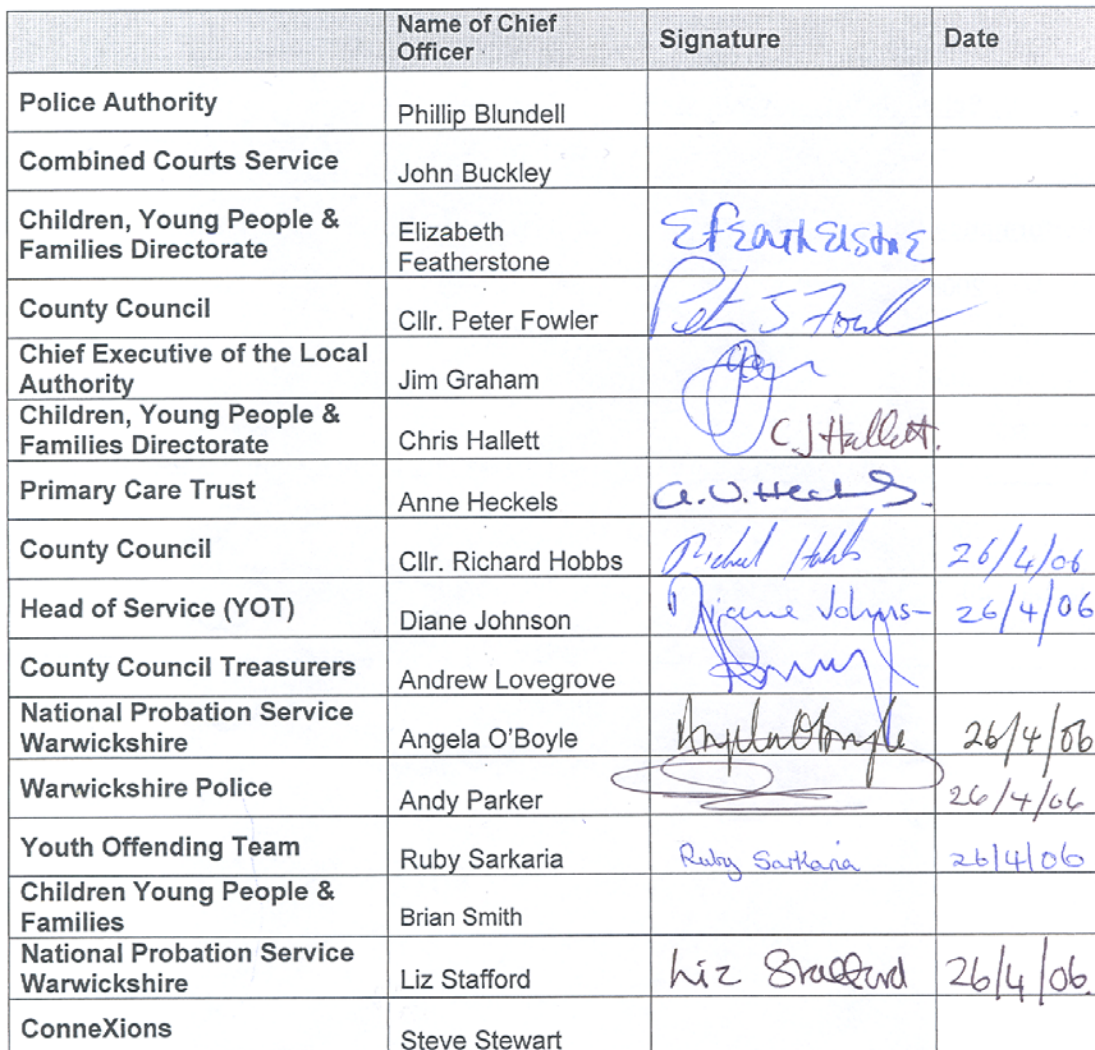 Name of Chief
Officer
Signature
Date
Police Authority
Phillip Blundell
Combined Courts Service
John Buckley
Children, Young People &
Families Directorate
Elizabeth
Featherstone
EFEathElstonE
County Council
Cllr. Peter Fowler
Peter J Fowl
Chief Executive of the Local
Authority
Jim Graham
Children, Young People &
Families Directorate
Chris Hallett
C J Hallett.
Primary Care Trust
Anne Heckels
County Council
Cllr. Richard Hobbs
Richard Hobbs
26/4/06
Head of Service (YOT)
Diane Johnson
Diane Johns
26/4/06
County Council Treasurers
Andrew Lovegrove
National Probation Service
Warwickshire
Angela O'Boyle
Angela O'Boyle
26/4/06
Warwickshire Police
Andy Parker
26/4/06
Youth Offending Team
Ruby Sarkaria
Ruby Sarkaria
26/4/06
Children Young People &
Families
Brian Smith
National Probation Service
Warwickshire
Liz Stafford
Liz Stafford
26/4/06.
ConneXions
Steve Stewart